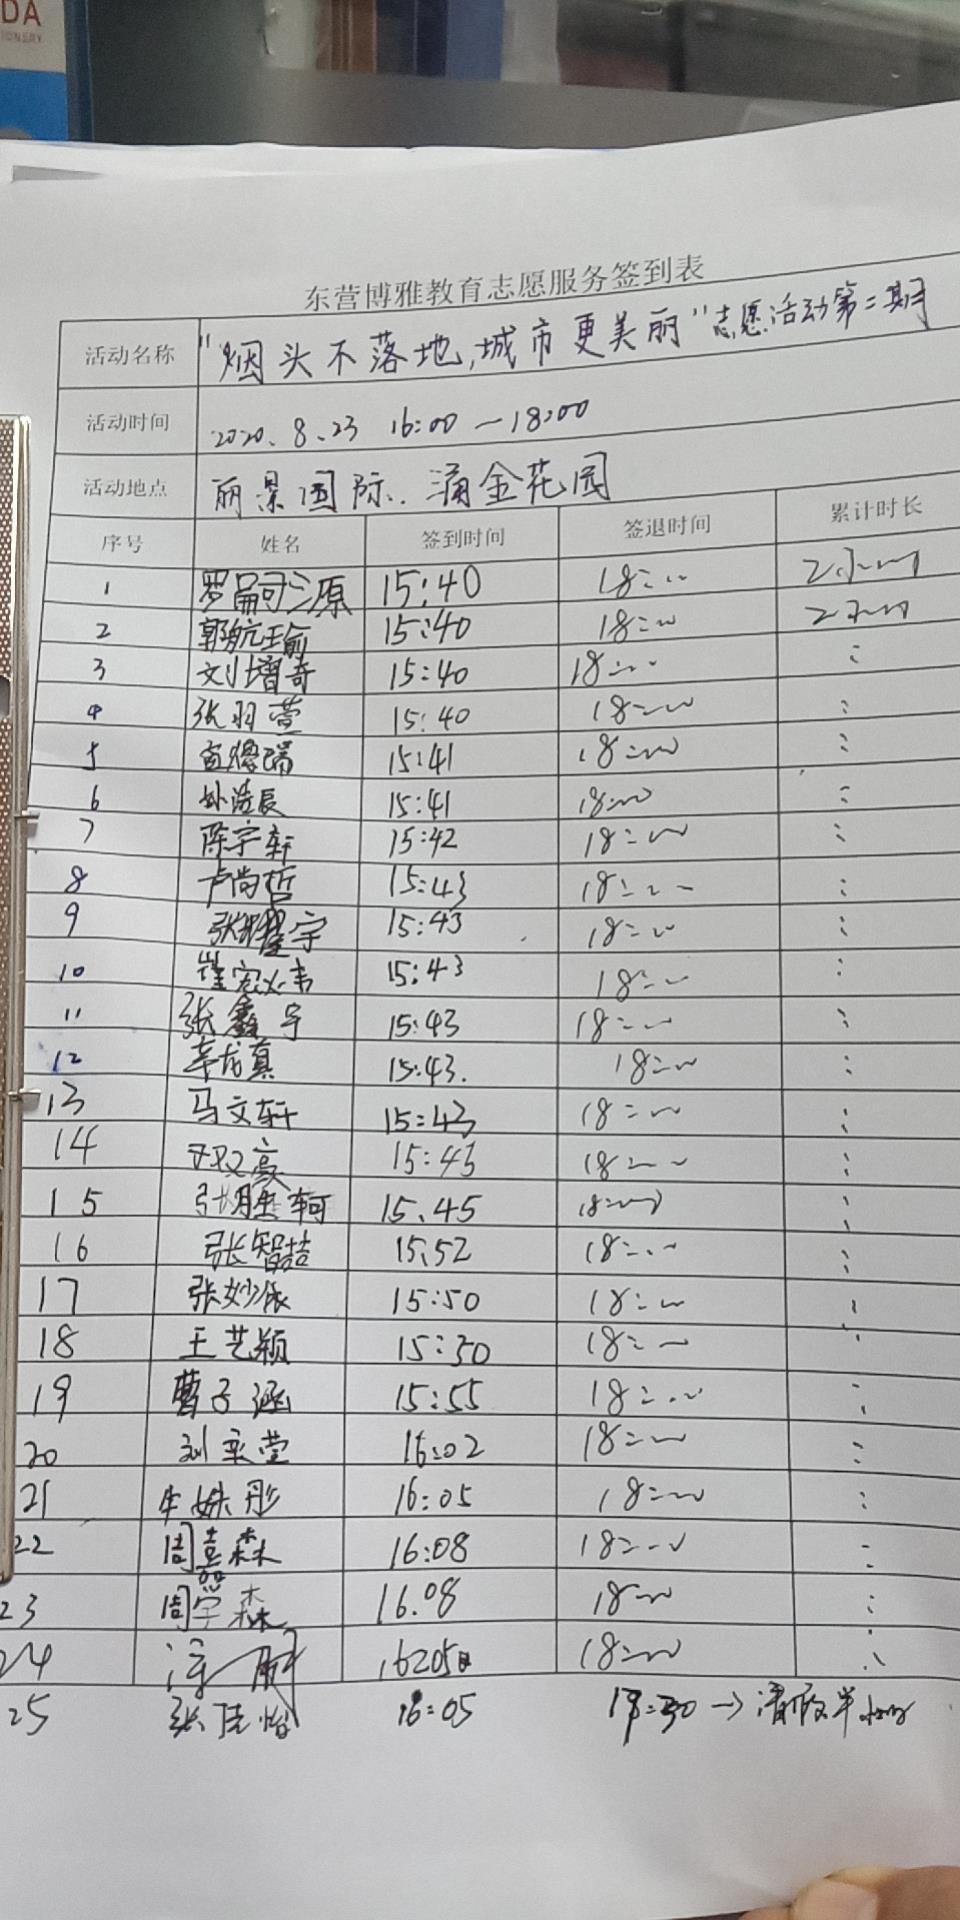 DA
东营博雅教育志愿服务签到表
活动名称 "烟头不落地,城市更美丽"志愿活动第二期
活动时间 2020.8.23 16:00—18:00
活动地点 丽景国际、涌金花园
序号 姓名 签到时间 签退时间 累计时长
1 15:40 18:00 2小时
2 郭航瑜 15:40 18:00 2小时
3 刘增奇 15:40 18:00
4 张羽萱 15:40 18:00
5 15:41 18:00
6 15:41 18:00
7 陈宇轩 15:42 18:00
8 卢尚哲 15:43 18:00
9 张耀宇 15:43 18:00
10 15:43 18:00
11 张鑫宇 15:43 18:00
12 15:43. 18:00
13 马文轩 15:43 18:00
14 15:43 18:00
15 15:45 18:00
16 张智喆 15:52 18:00
17 张妙依 15:50 18:00
18 王艺颖 15:50 18:00
19 曹子涵 15:55 18:00
20 16:02 18:00
21 牛姝彤 16:05 18:00
22 周嘉森 16:08 18:00
23 周学森 16.08 18:00
24 18:00
25 16:05 17:30→请假半小时